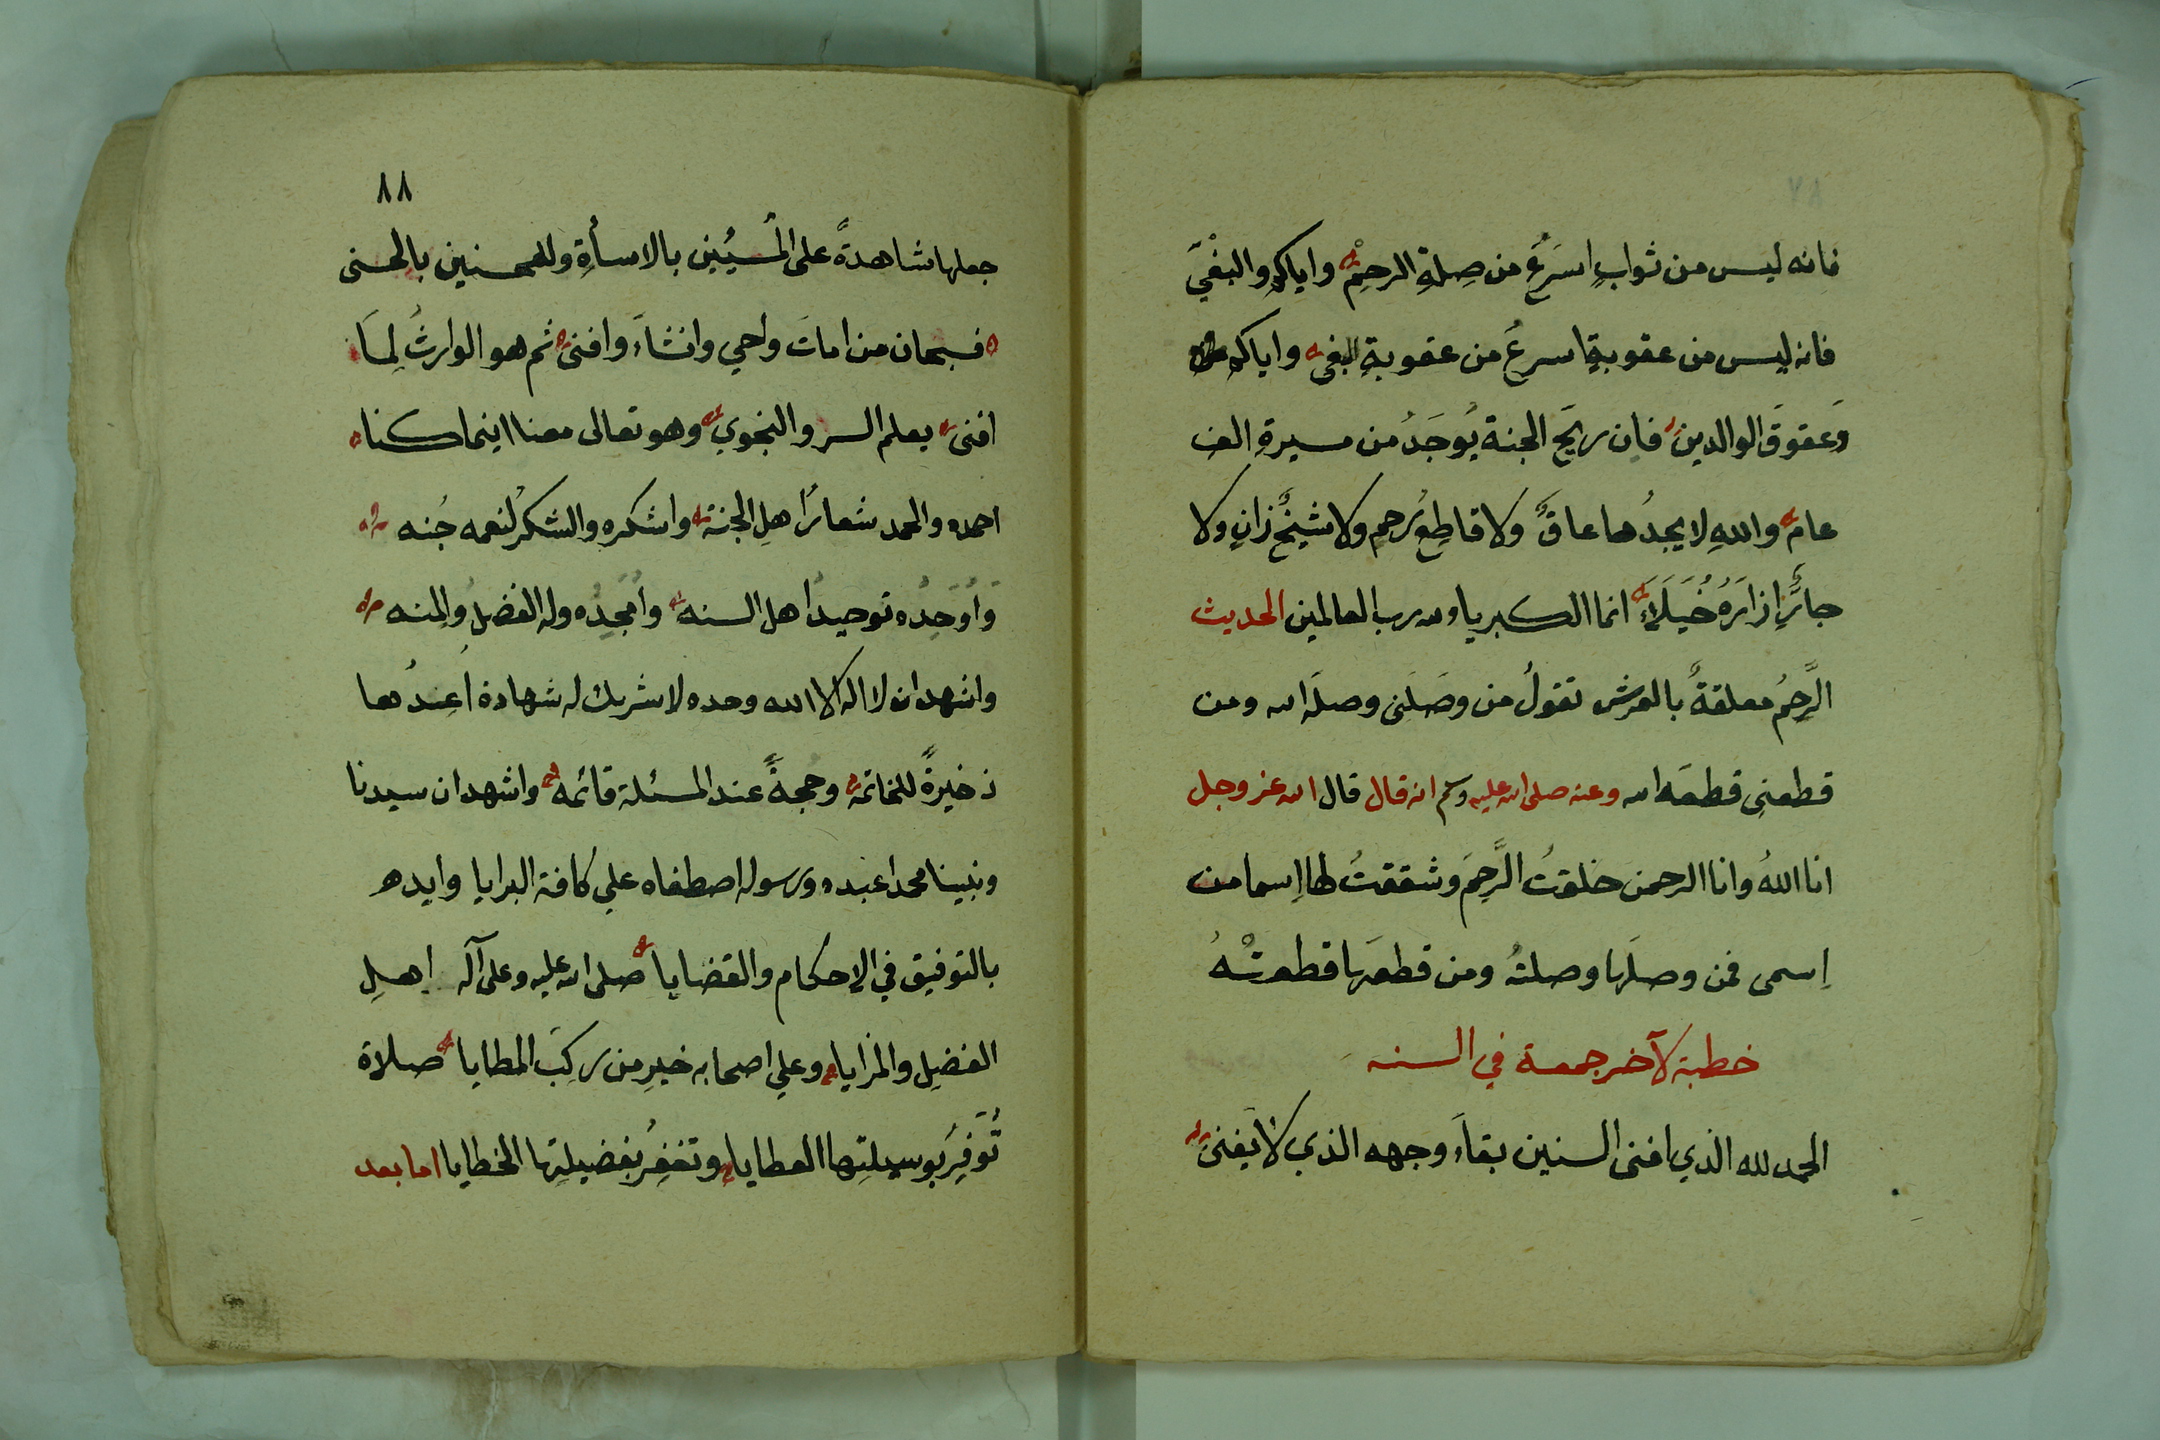 فانه ليس من ثوابٍ اسرَعُ من صِلةِ الرحِمْ واياكم والبغْيَ
فانه ليس من عقوبةٍ اسرعُ من عقوبةِ البغي واياكم
وَعقوقَ الوالدين فاِن ريَح الجنة يُوجَدُ من مسيرةِ الف
عام واللهِ لا يجدُها عاقٌ ولا قاطِعُ رحمٍ ولا شيخٌ زانٍ ولا
جارٌّ اِزارَهُ خُيَلَاَءَ انما الكبرياء لله رب العالمين الحديث
الرَّحِمُ معلقةٌ بالعرش تقولُ من وصَلَنى وصلَه الله ومن
قطعنِى قطعَه الله وعنه صلى الله عليه وسلم انه قال قال الله عز وجل
انا اللهُ وانا الرحمن خلقتُ الرَّحِمَ وشققتُ لها اِسما من
اِسمى فمن وصلَها وصلتهُ ومن قطعَها قطعتْهُ
خطبة لآخر جمعة في السنه
الحمد لله الذي افنى السنين بقاءَ وجهه الذي لا يَفنىَ
٨٨
جعلها شاهدةً على المُسيُئين بالاسأةِ وللمحسنين بالحسنى
فسبحان من اماتَ واحيي وانشاءَ وافنى ثم هو الوارثُ لِماَ
افنى يعلم السر والنجوي وهو تعالى معنا اينما كنا
احمده والحمد شعائرُ اهلِ الجنة واشكره والشكرُ لنعمه جُنه
وَاُوَحِدُه توحيدُ اهل السنه واُمَجِدُه وله الفضلُ والمنه
واشهد ان لا اله الا الله وحده لا شريك له شهادة اُعِدُها
ذخيرةً للخاتمة وحُجةً عند المسئلة قائمه واشهد ان سيدنا
ونبينا محمدا عبده ورسوله اصطفاه علي كافة البرايا وايده
بالتوفيق في الاحكام والقضايا صلى الله عليه وعلى آله اهلِ
الفضلِ والمزايا وعلي اصحابه خيرِ من ركِبَ المطايا صلاة
تُوَفِرُ بوسيلتِها العطايا وتغفِرُ بفضيلتِها الخطايا اما بعد